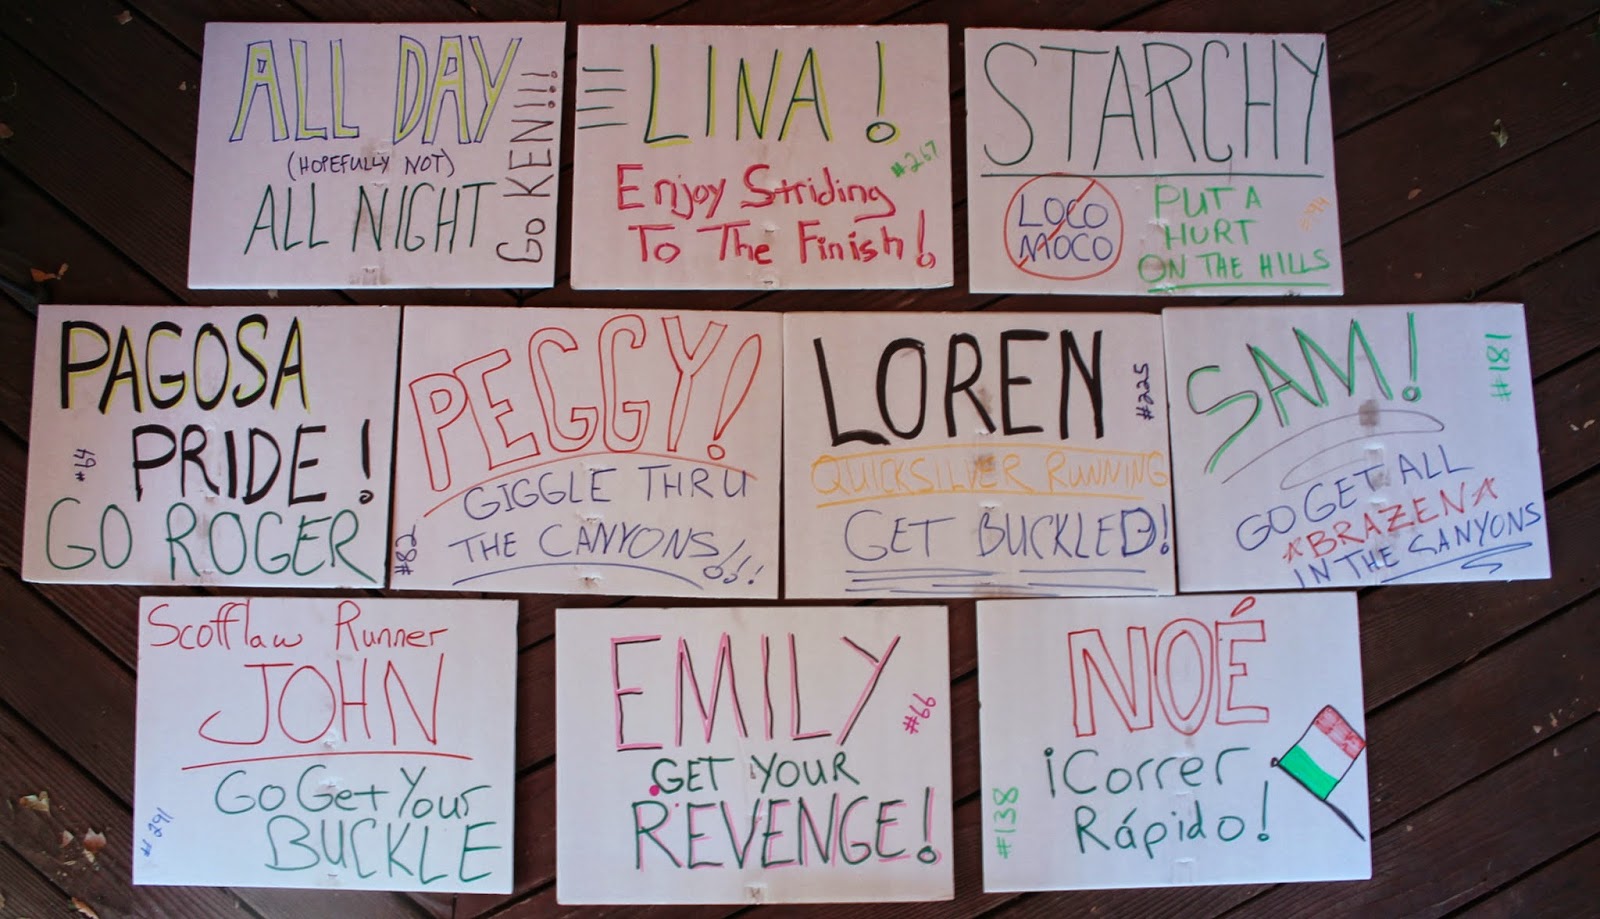 ALL DAY
(HOPEFULLY NOT)
ALL NIGHT
Go KEN!!!
LINA!
#267
Enjoy Striding
To The Finish!
STARCHY
LOCO
MOCO
PUT A
HURT
ON THE HILLS
PAGOSA
PRIDE!
#64
GO ROGER
PEGGY!
GIGGLE THRU
THE CANYONS!!!
#82
LOREN
#225
QUICKSILVER RUNNING
GET BUCKLED!
SAM!
#181
GO GET ALL
*BRAZEN*
IN THE CANYONS
Scofflaw Runner
JOHN
Go Get Your
BUCKLE
#291
EMILY
#66
GET YOUR
REVENGE!
NOÉ
¡Correr
Rápido!
#138